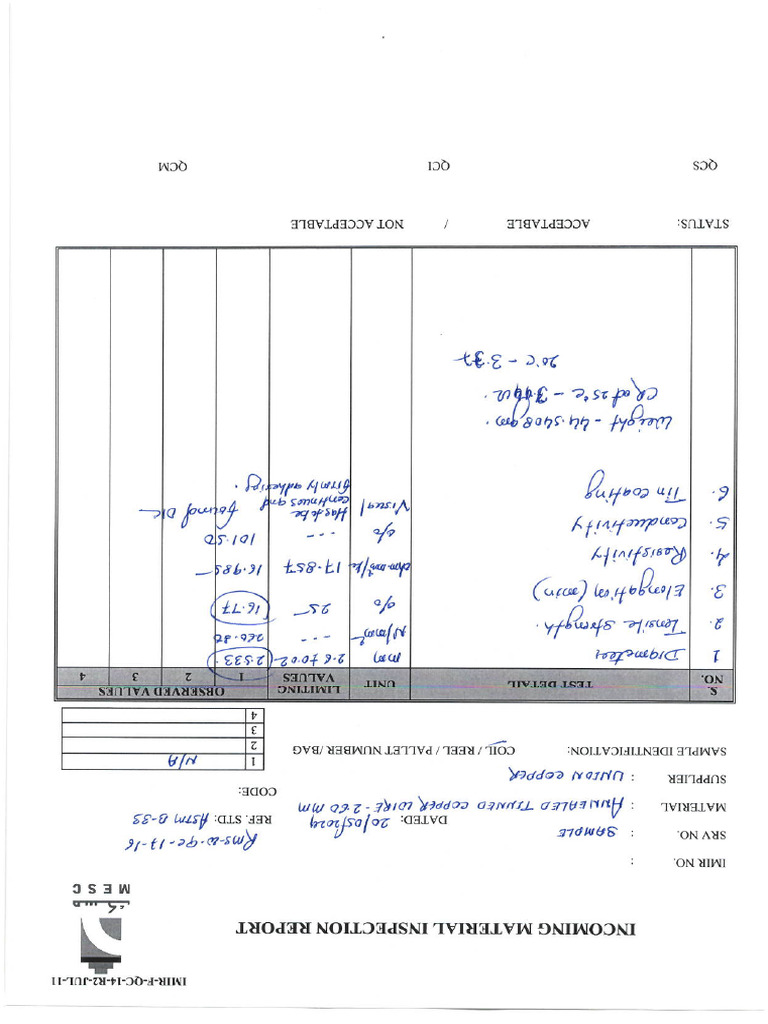 IMIR-F-QC-14-R2-JUL-11
MESC
INCOMING MATERIAL INSPECTION REPORT
IMIR NO. :
Rms-w-qc-17-16
SRV NO. : SAMPLE DATED: 20/05/2024 REF. STD: ASTM B-33
MATERIAL : ANNEALED TINNED COPPER WIRE-2.60 MM CODE:
SUPPLIER : UNION COPPER
SAMPLE IDENTIFICATION: COIL / REEL / PALLET NUMBER /BAG
1 N/A
2
3
4
S. NO. TEST DETAIL UNIT LIMITING VALUES OBSERVED VALUES
1 2 3 4
1 Diameter mm 2.6±0.02 2.533
2. Tensile strength. N/mm² --- 260.80
3. Elongation (min) % 25 16.77
4. Resistivity ohm.mm²/k 17.857 16.985
5. Conductivity % --- 101.50
6. Tin coating Visual Has to be continues and firmly adhering. found OK
Weight - 44.5408 gm.
CR at 25°C -
20°C - 3.37
STATUS: ACCEPTABLE / NOT ACCEPTABLE
QCS QCI QCM